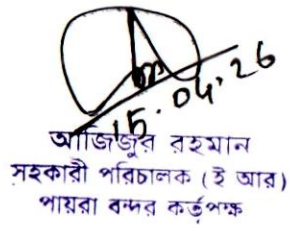 15.04.26
আজিজুর রহমান
সহকারী পরিচালক (ই আর)
পায়রা বন্দর কর্তৃপক্ষ